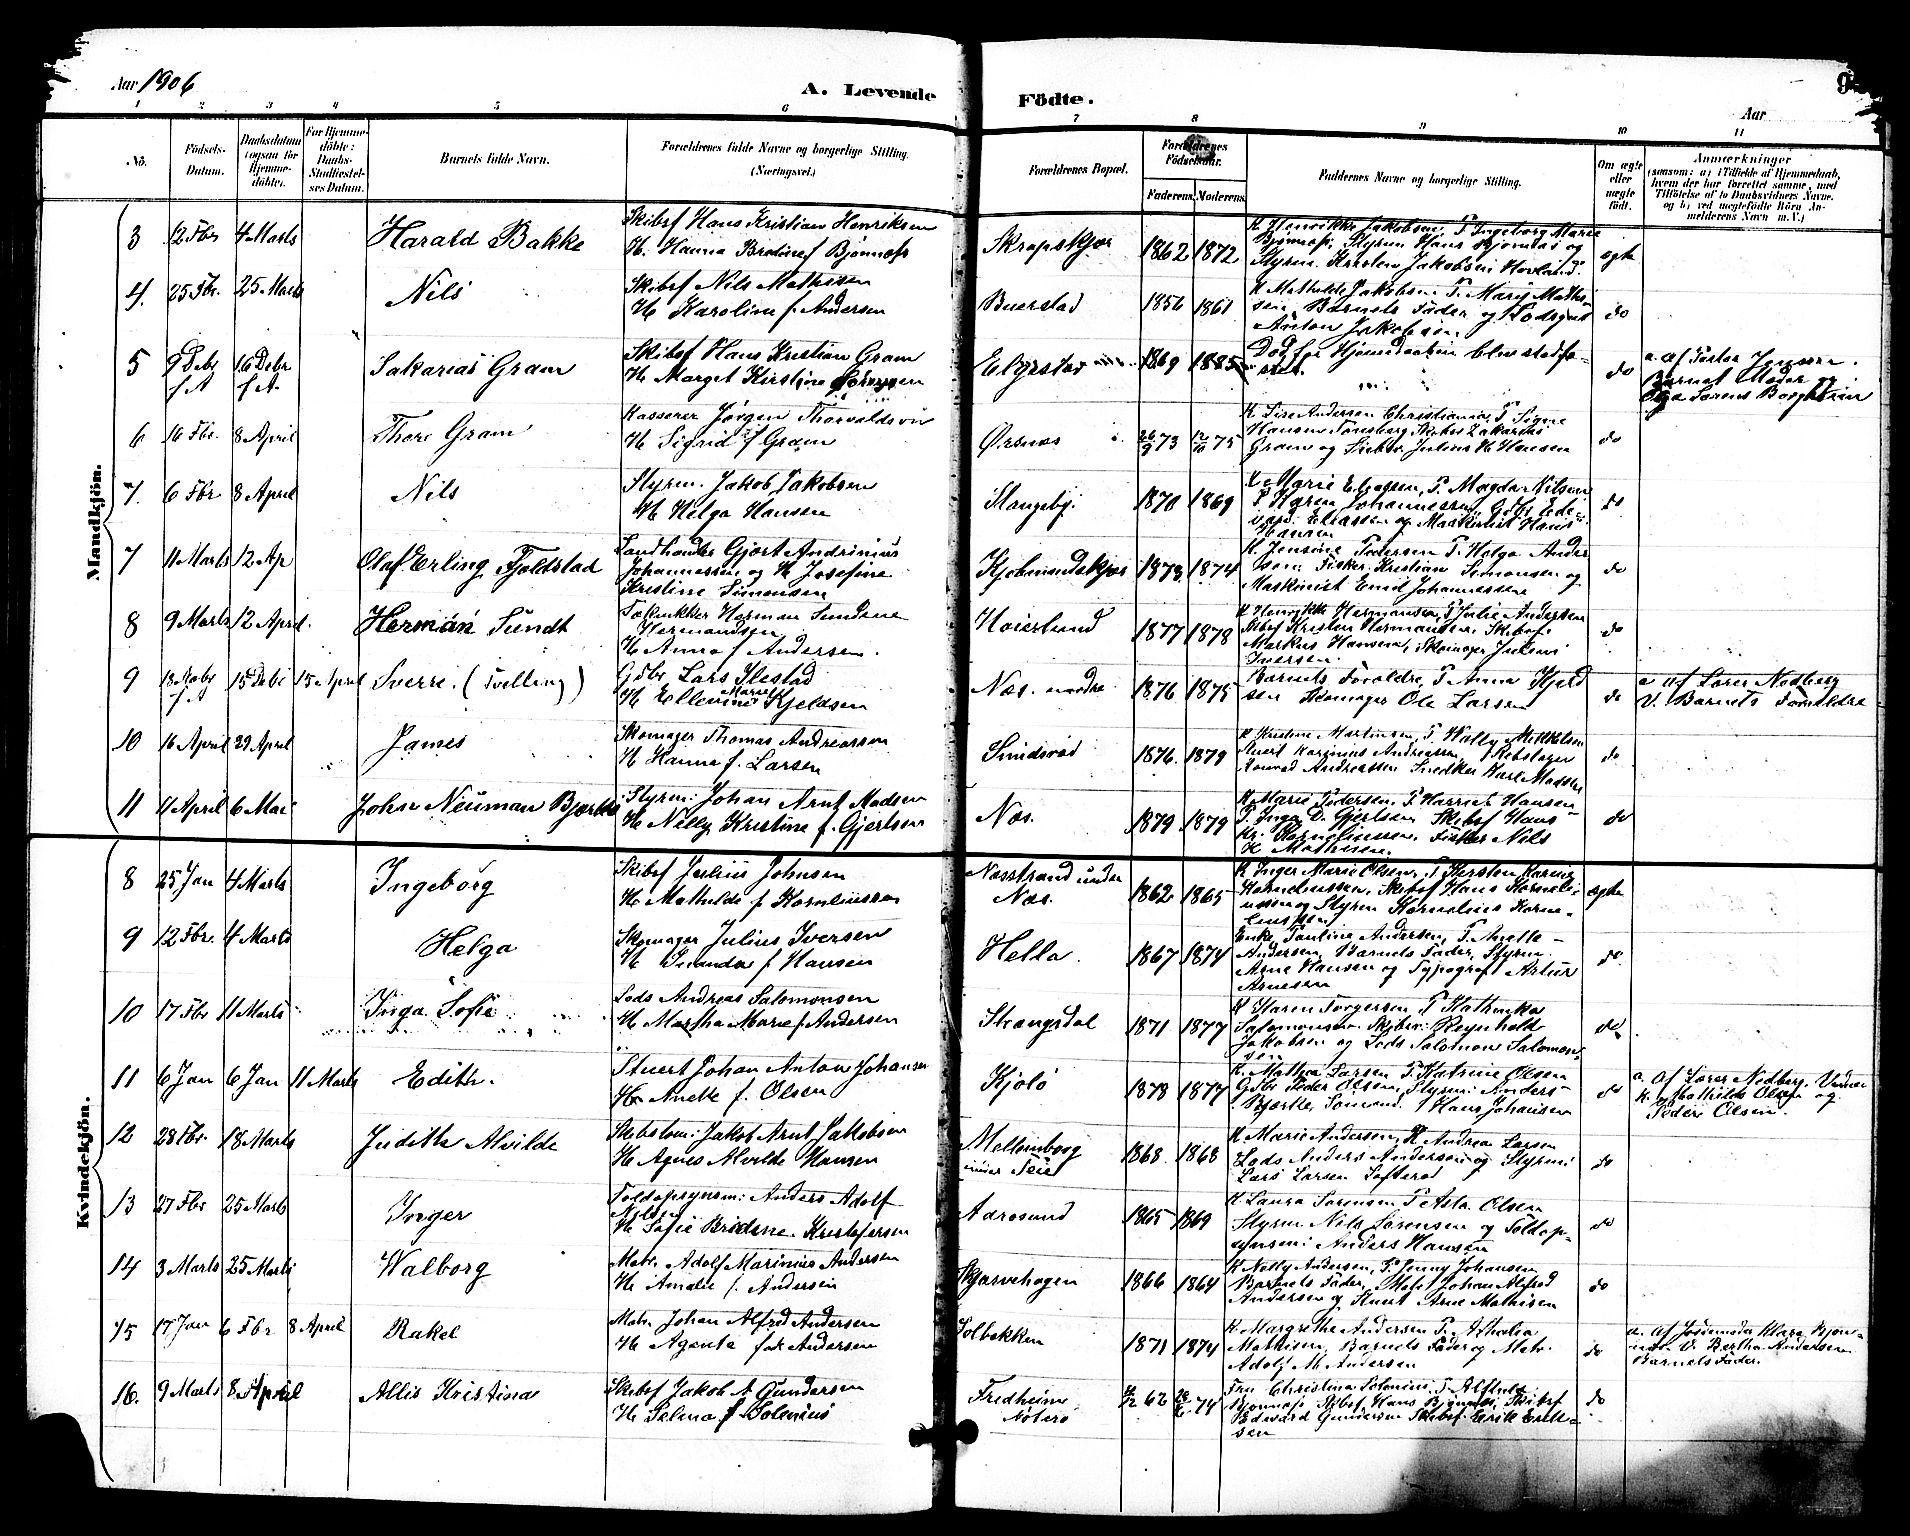 Aar 1906
A. Levende Födte.
9
Aar
1 2 3 4 5 6 7 8 9 10 11
No. Födsels-Datum. Daabsdatum (ogsaa for Hjemmedöbte). For Hjemmedöbte: Daabs-Stadfæstelses Datum. Barnets fulde Navn. Forældrenes fulde Navne og borgerlige Stilling. (Næringsvei.)
Forældrenes Bopæl. Forældrenes Födselsaar. Faderens. Moderens. Faddernes Navne og borgerlige Stilling. Om ægte eller uægte födt.
Anmærkninger
(saasom: a) i Tilfælde af Hjemmedaab, hvem der har forrettet samme, med Tilföielse af to Daabsvidners Navne, og b) ved uægtefödte Börn Anmelderens Navn m. V.)
Mandkjön.
3 12 Fbr 4 Marts Harald Bakke Skibsf Hans Kristian Henriksen
H. Hanna Bredine f Bjønnæss
1862 1872 K Henrikke Jakobsen, P. Ingeborg Marie
Bjønnæss, Styrm Hans Bjønnæs og
Styrm. Kristen Jakobsen Hovland. ægte
4. 25 Fbr. 25 Marts Nils Skibsf Nils Mathisen
H Karoline f. Andersen
Buerstad 1856 1861 K Mathilde Jakobsen. P. Mary Mathi-
sen, Barnets Fader og Lodsgut
Anton Jakobsen do
5 9 Debr f.A 16 Debr f.A. Sakarias Gram Skibsf Hans Kristian Gram
H Marget Kirstine Sørensen
1869 1885 Død før Hjemdaaben blev stadfæ-
stet. do a. af Jordmor
Barnet Moder og
6 16 Fbr. 8 April Thore Gram Kasserer Jørgen Thorvaldsen
H Sigrid f Gram
Ørsnes 26/9 73 12/10 75 Hansen Tønsberg, Skibsr Zakarias
Gram og Julius H Hansen do
7. 6 Fbr 8 April Nils Styrm. Jakob Jakobsen
H Helga Hansen
Stangeby. 1870 1869 K Marie Eliassen, P. Magda Nilsen
P Karen Johannessen, Gdbr Ede-
vard Eliassen og Maskinist Hans
Hansen do
7 11 Marts 12 Ap Olaf Erling Fjeldstad Landhandler Gjert Andrinius
Johannessen og H Josefine
Kristine Simonsen
1878 1874 K. Jensine Pedersen P. Helga Ander
sen, Fisker Kristian Simonsen og
Maskinist Emil Johannessen do
8 9 Marts 12 April. Herman Sundt Tolk Herman Sundene
Hermandsen
H Anna f Andersen.
Høierland 1877 1878 K Henrikke Hermansen, P Julie Andersen
Skibsf Kristen Hermansen, Skibsf.
Markus Hansen, Skomager Julius
Iversen. do
9 18 Nobr f.A 15 Debr 15 April Sverre. (Tvilling) Gdbr Lars Ilestad
H Ellevine Marie Kjeldsen
Næs. nordre 1876 1875 Barnets Forældre, P Anna Kjeld
sen Skomager Ole Larsen do a af Lærer Nedberg
V. Barnets Forældre
10 16 April 29 April James Skomager Thomas Andreassen
H Hanna f. Larsen
Smidsrød 1876. 1879 K Kristine Martinsen, P Wally Mikkelsen
Stuert Karinius Andreassen, Rebslager
Konrad Andreassen Snedker Karl Madsen do
11 11 April 6 Mai John Neuman Bjærkø Styrm: Johan Arnt Madsen
H Nelly Kristine f. Gjertsen
Næs. 1879 1879 K Marie Pedersen, P. Harriet Hansen
P. Inga D. Gjertsen Skibsf Hans
Kr. Kornelinssen, Fisker Nils
H Mathisen. do
Kvindekjön.
8 25 Jan 4 Marts Ingeborg Skibsf Julius Johnsen
H. Mathilde f Kornliussen
Næsstrand under
Næs. 1862 1865 K Inger Marie Olsen, P Kersten Karin
Korneliussen, Skibsf Hans Korneli-
ussen og Styrm Kornelius Korne-
liussen ægte
9 12 Fbr. 4 Marts Helga Skomager Julius Iversen
H f Hansen
Hella. 1867 1874 Enke Pauline Andersen, P. Mette
Andersen, Barnets Fader, Styrm.
Arne Hansen og Typograf Artur
Arnesen do.
10 17 Fbr 11 Marts Inga Sofie Lods Andreas Salomonsen
H Martha Marie f. Andersen
Strangsdal 1871 1877 K Karen Torgersen P Kathinka
Salomonsen Skibsr: Reynhold
Jakobsen og Lods Salomon Salomon-
sen do
11 6 Jan 6 Jan 11 Marts Edith. Stuert Johan Anton Johansen
H Anette f. Olsen
Kjøle 1878 1877 K. Mathea Larsen P. Katrine Olsen
Gdbr Peder Olsen, Styrm: Anders
Bjærke Sømand Hans Johansen do a. af Lærer Nedberg. Vidner
K. Mathilde Olsen og
Peder Olsen.
12 28 Fbr. 18 Marts Judith Alvilde Skibstøm: Jakob Arnt Jakobsen
H. Agnes Alvilde Hansen
Mellemborg
under Teie 1868 1868 K Marie Andersen, K Andrea Larsen
Lods Anders Andersen og Styrm:
Lars Larsen Softerød do
13 27 Fbr 25 Marts Inger Toldopsynsm: Anders Adolf
Nilsen
H. Sofie Bredine. Kristofersen
Aarøsund 1865 1869 K Laura Sørensen P Asta Olsen
Styrm Nils Sørensen og Toldop-
synsm: Anders Hansen do
14 3 Marts 25 Marts Walborg Matr. Adolf Marinius Andersen
H. Amalie f. Andersen
Skjærvehagen 1866 1864 K Nelly Andersen, P. Jenny Johansen
Barnets Fader, Matr Johan Alfred
Andersen og Stuert Arne Mathisen do
15 17 Jan 6 Fbr 8 April Rakel Matr. Johan Alfred Andersen
H. Agente født Andersen
Solbakken 1871 1874 K. Margrethe Andersen P. Athalia
Mathisen, Barnets Fader og Matr.
Adolf M. Andersen do a. af Jordemoder Klara Bjøn-
næs V. Bertha Andersen
Barnets Fader.
16. 9 Marts 8 April Allis Kristina Skibsf Jakob A Gundersen
H Selma f Solenius
Fredheim
Nøterø 62 74 Fru Christina Solenius, P.
Bjønnæss Skibsf. Hans Bjønnæs, Skibsf
Edward Gundersen Skibsf. Erik Erik-
sen do